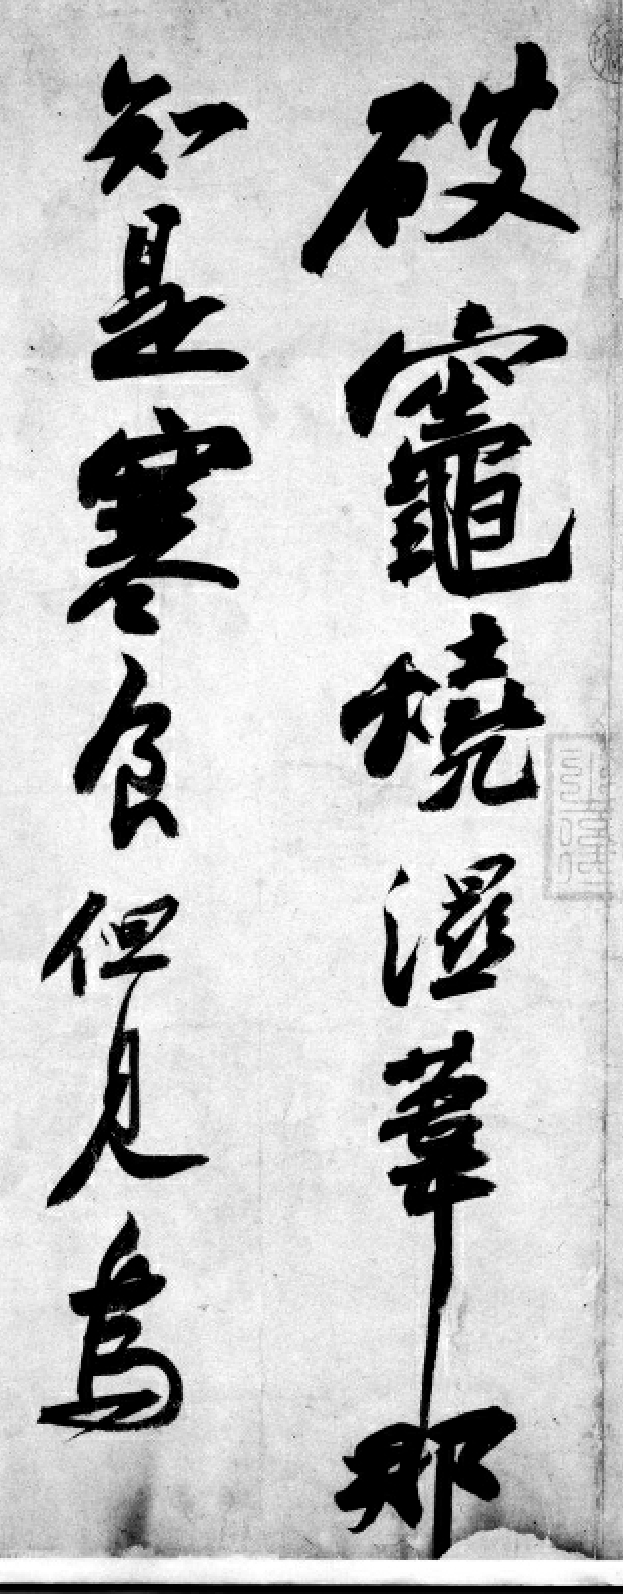 破竈燒濕葦那
知是寒食但見烏